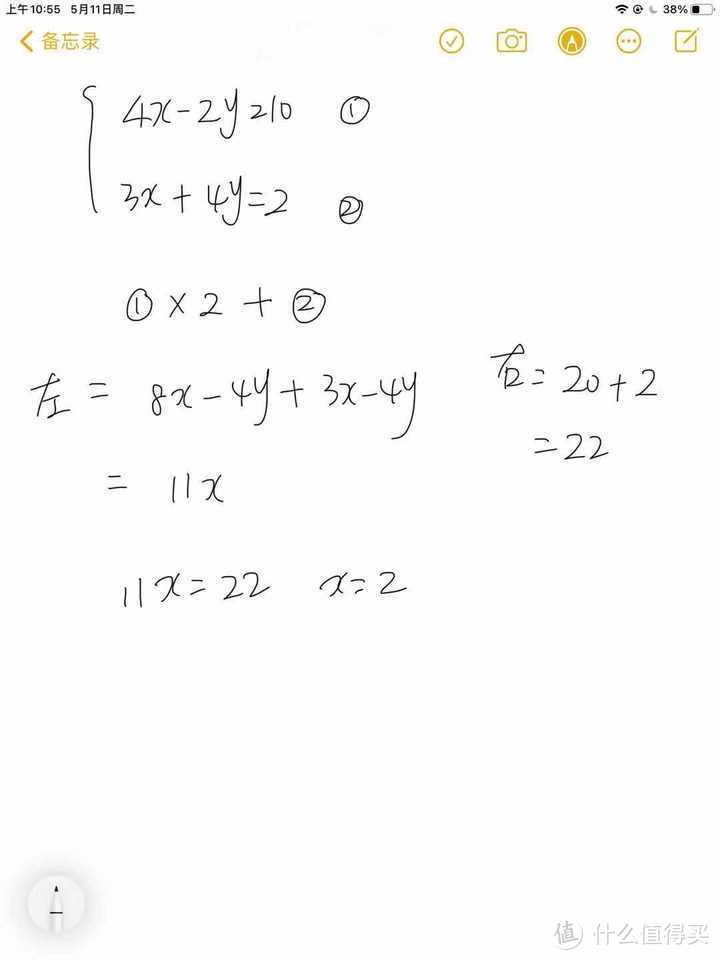 上午10:55 5月11日周二 38%
备忘录
4x-2y=10 ①
3x+4y=2 ②
①×2+②
左= 8x-4y+3x-4y 右=20+2
=22
= 11x
11x=22 x=2
值 什么值得买